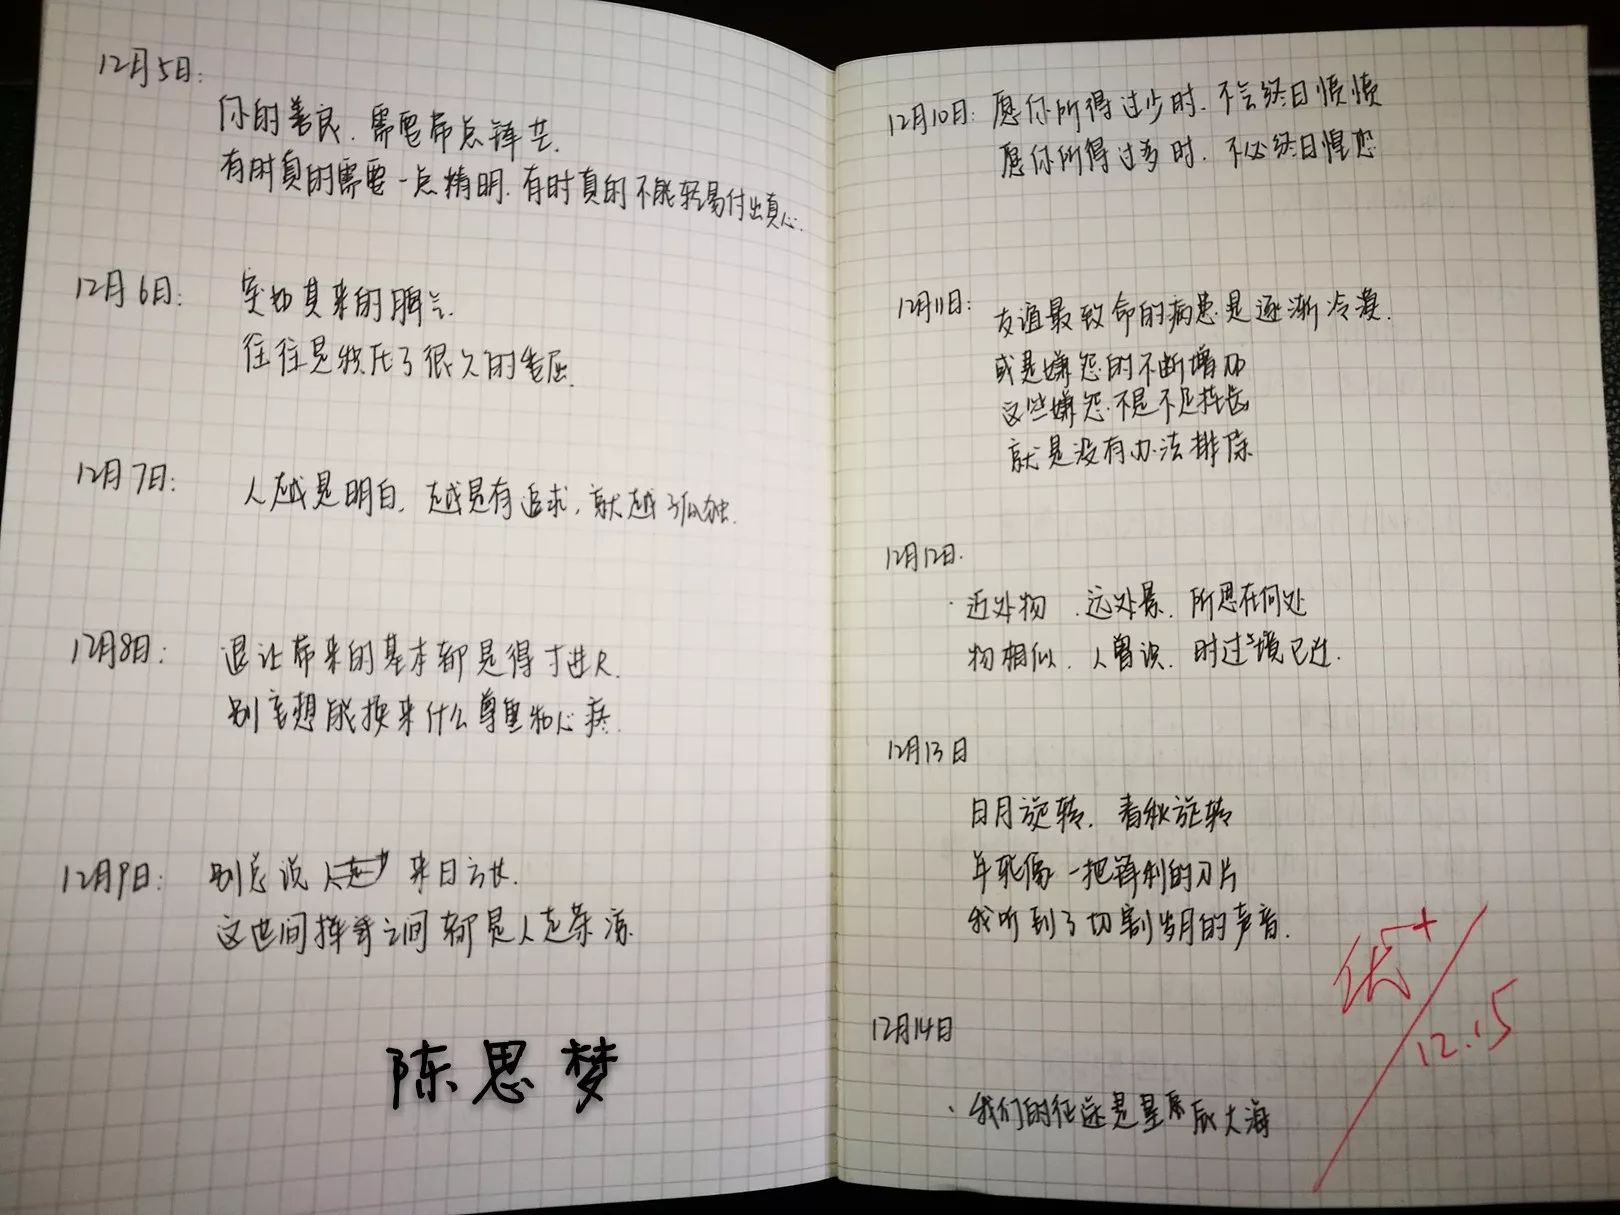 12月5日:
你的善良.需要带点锋芒.
有时真的需要一点精明.有时真的不能轻易付出真心.
12月6日: 突如其来的脾气.
往往是积压了很久的委屈.
12月7日: 人越是明白.越是有追求,就越孤独.
12月8日: 退让带来的基本都是得寸进尺.
别妄想能换来什么尊重和心疼.
12月9日: 别总说 来日方长.
这世间挥手之间都是人走茶凉.
陈思梦
12月10日: 愿你所得过少时.不会终日愤愤
愿你所得过多时.不必终日惶恐
12月11日: 友谊最致命的病患是逐渐冷漠.
或是嫌怨的不断增加
这些嫌怨不是不足挂齿
就是没有办法排除
12月12日.
·近处物.远处景.所思在何处
物相似.人曾识.时过境已迁.
12月13日
日月旋转.春秋旋转
年轮像一把锋利的刀片
我听到了切割岁月的声音.
12月14日
·我们的征途是星辰大海
优+
12.15